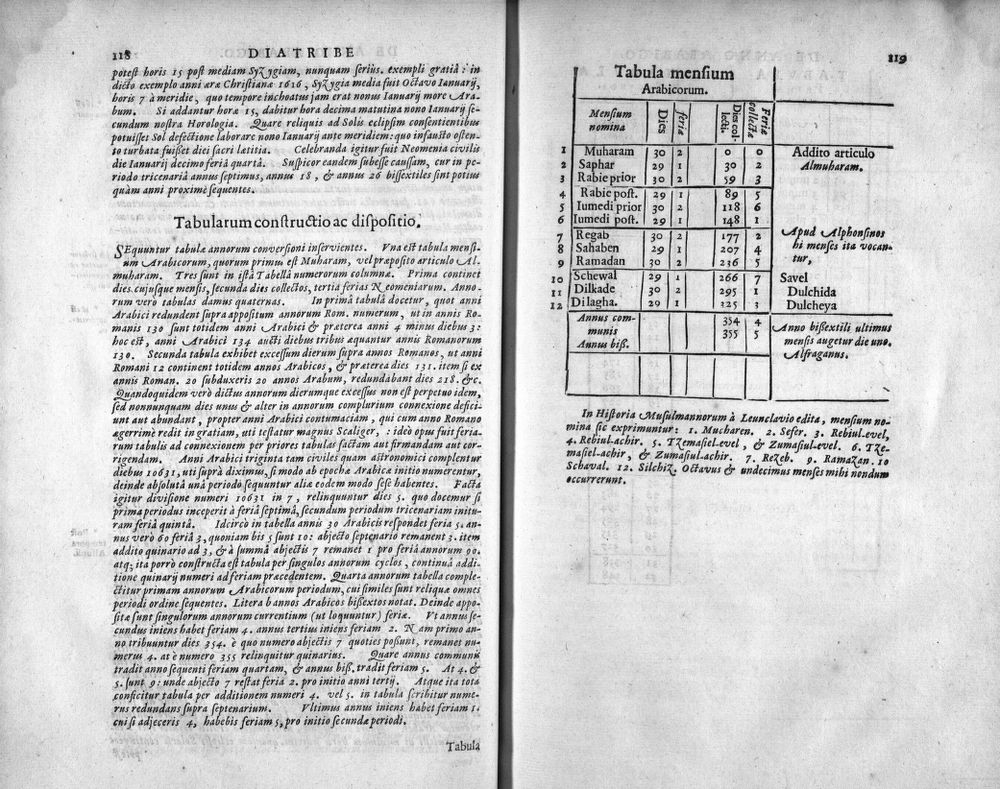 118
DIATRIBE
potest horis 15 post mediam Syzygiam, nunquam seriùs. exempli gratiâ: in
dicto exemplo anni æræ Christianæ 1616, Syzygia media fuit Octavo Ianuarij,
horis 7 à meridie, quo tempore inchoatus jam erat nonus Ianuarij more Ara-
bum. Si addantur horæ 15, dabitur hora decima matutina nono Ianuarij se-
cundum nostra Horologia. Quare reliquis ad Solis eclipsim consentientibus
potuisset Sol defectione laborare nono Ianuarij ante meridiem: quo infausto osten-
to turbata fuisset diei sacri lætitia. Celebranda igitur fuit Neomenia civilis
die Ianuarij decimo feriâ quartâ. Suspicor eandem subesse caussam, cur in pe-
riodo tricenariâ annus septimus, annus 18, & annus 26 bissextiles sint potius
quàm anni proximè sequentes.
Tabularum constructio ac dispositio.
SEquuntur tabulæ annorum conversioni inservientes. Vna est tabula mensi-
um Arabicorum, quorum primus est Muharam, vel præposito articulo Al-
muharam. Tres sunt in istâ Tabellâ numerorum columnæ. Prima continet
dies cujusque mensis, secunda dies collectos, tertia ferias Neomeniarum. Anno-
rum verò tabulas damus quaternas. In primâ tabulâ docetur, quot anni
Arabici redundent supra appositum annorum Rom. numerum, ut in annis Ro-
manis 130 sunt totidem anni Arabici & præterea anni 4 minus diebus 3:
hoc est, anni Arabici 134 aucti diebus tribus æquantur annis Romanorum
130. Secunda tabula exhibet excessum dierum supra annos Romanos, ut anni
Romani 12 continent totidem annos Arabicos, & præterea dies 131. item si ex
annis Roman. 20 subduxeris 20 annos Arabum, redundabunt dies 218. &c.
Quandoquidem verò dictus annorum dierumque excessus non est perpetuo idem,
sed nonnunquam dies unus & alter in annorum complurium connexione defici-
unt aut abundant, propter anni Arabici contumaciam, qui cum anno Romano
ægerrimè redit in gratiam, uti testatur magnus Scaliger: ideò opus fuit feria-
rum tabulis ad connexionem per priores tabulas factam aut firmandam aut cor-
rigendam. Anni Arabici triginta tam civiles quam astronomici complentur
diebus 10631, uti suprà diximus, si modo ab epochæ Arabicæ initio numerentur,
deinde absolutâ unâ periodo sequuntur aliæ eodem modo sese habentes. Factâ
igitur divisione numeri 10631 in 7, relinquuntur dies 5. quo docemur si
prima periodus inceperit à feriâ septimâ, secundum periodum tricenariam initu-
ram feriâ quintâ. Idcircò in tabella annis 30 Arabicis respondet feria 5. an-
nus verò 60 feria 3, quoniam bis 5 sunt 10: abjecto septenario remanent 3. item
addito quinario ad 3, & à summâ abjectis 7 remanet 1 pro feriâ annorum 90.
atq; ita porrò constructa est tabula per singulos annorum cyclos, continuâ addi-
tione quinarij numeri ad feriam præcedentem. Quarta annorum tabella comple-
ctitur primam annorum Arabicorum periodum, cui similes sunt reliquæ omnes
periodi ordine sequentes. Litera b annos Arabicos bissextos notat. Deinde appo-
sitæ sunt singulorum annorum currentium (ut loquuntur) feriæ. Vt annus se-
cundus iniens habet feriam 4. annus tertius iniens feriam 2. Nam primo an-
no tribuuntur dies 354. è quo numero abjectis 7 quoties possunt, remanet nu-
merus 4. at è numero 355 relinquitur quinarius. Quare annus communis
tradit anno sequenti feriam quartam, & annus biss. tradit feriam 5. At 4. &
5. sunt 9: unde abjecto 7 restat feria 2. pro initio anni tertij. Atque ita tota
conficitur tabula per additionem numeri 4. vel 5. in tabula scribitur nume-
rus redundans supra septenarium. Vltimus annus iniens habet feriam 1.
cui si adjeceris 4, habebis feriam 5, pro initio secundæ periodi.
Tabula
119
Tabula mensium
Arabicorum.
Mensium nomina Dies feriæ Dies collecti. Feriæ collectæ
1 Muharam 30 2 0 0 Addito articulo
2 Saphar 29 1 30 2 Almuharam.
3 Rabie prior 30 2 59 3
4 Rabie post. 29 1 89 5
5 Iumedi prior 30 2 118 6
6 Iumedi post. 29 1 148 1
7 Regab 30 2 177 2 Apud Alphonsinos
8 Sahaben 29 1 207 4 hi menses ita vocan-
9 Ramadan 30 2 236 5 tur,
10 Schewal 29 1 266 7 Savel
11 Dilkade 30 2 295 1 Dulchida
12 Dilagha. 29 1 325 3 Dulcheya
Annus com- 354 4
munis 355 5 Anno bissextili ultimus
Annus biss. mensis augetur die uno.
Alfraganus.
In Historia Musulmannorum à Leunclavio edita, mensium no-
mina sic exprimuntur: 1. Mucharen. 2. Sefer. 3. Rebiul-evel,
4. Rebiul-achir. 5. Tzemasiel-evel, & Zumasiul-evel. 6. Tze-
masiel-achir, & Zumasiul-achir. 7. Rezeb. 9. Ramazan. 10
Schaval. 12. Silchiz. Octavus & undecimus menses mihi nondum
occurrerunt.